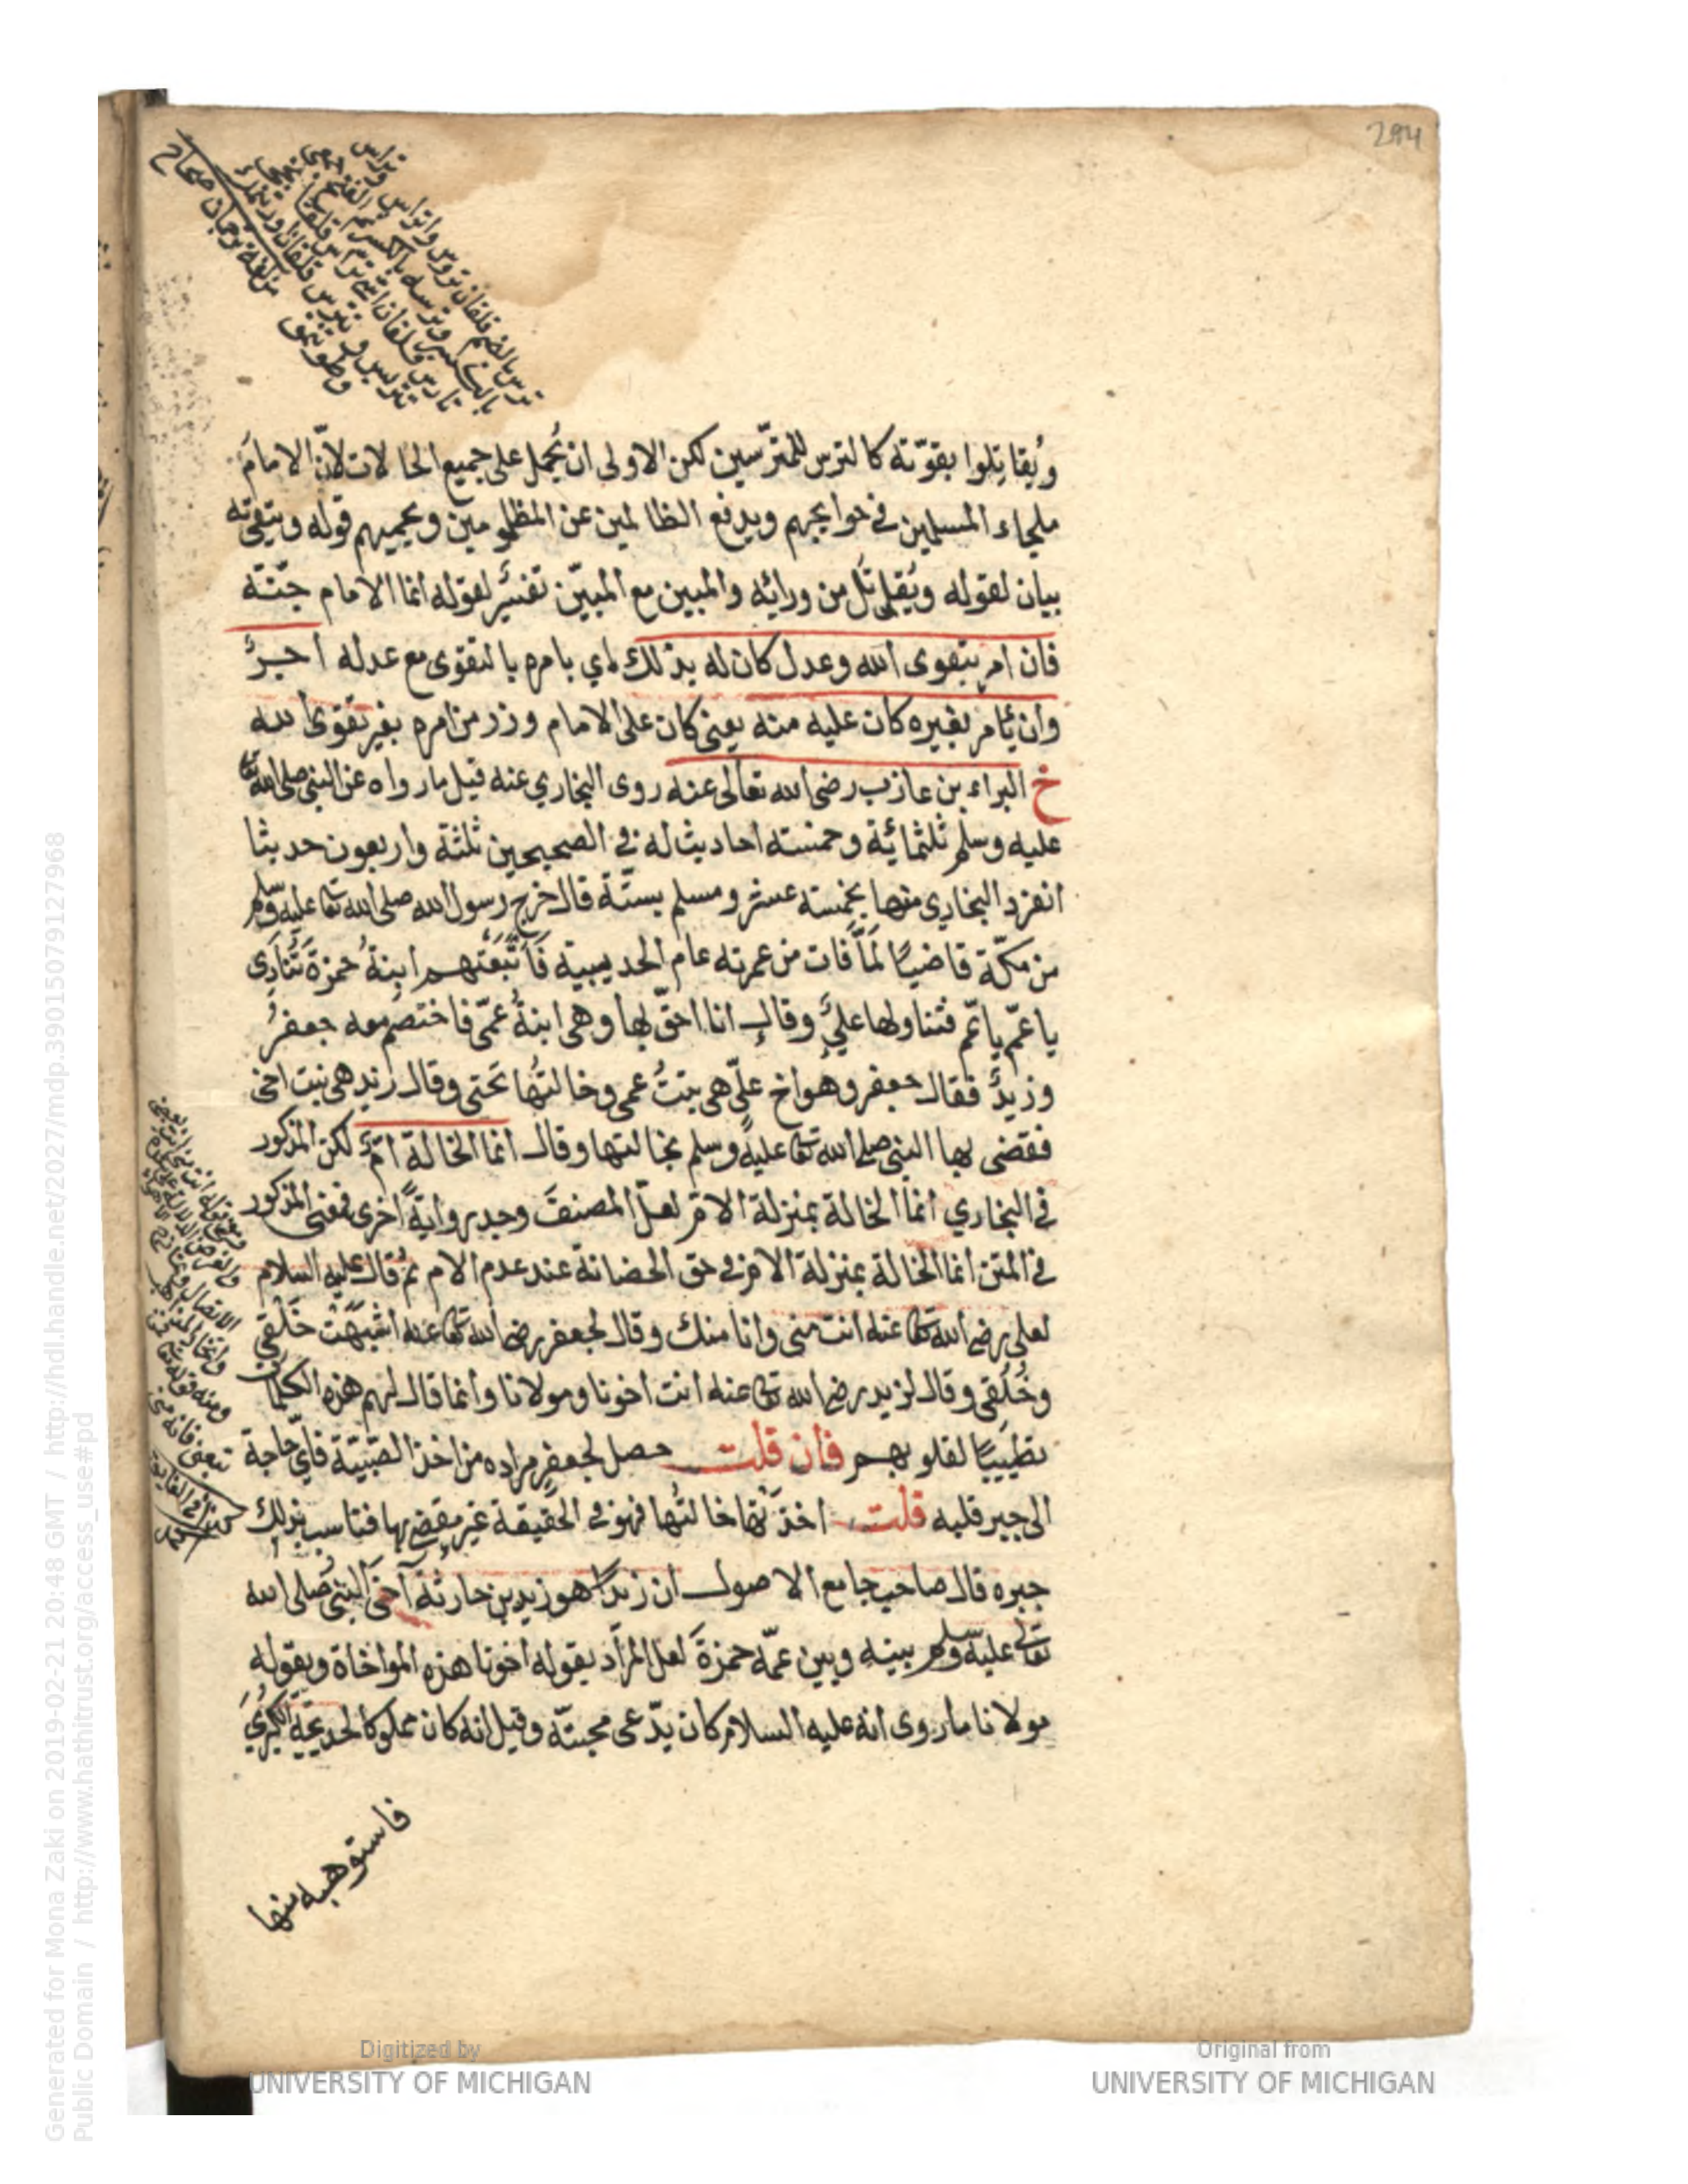 294
ويقاتلوا بقوّته كالترس للمتترّسين لكن الاولى ان يُحمل على جميع الحالات لانّ الامامَ
ملجاء المسلمين في حوايجهم ويدفع الظالمين عن المظلومين ويحميهم قوله ويتقى به
بيان لقوله ويُقاتَل من ورائه والمبين مع المبيّن تفسير لقوله انما الامام جنّة
فان امر بتقوى الله وعدل كان له بذلك اي بامره بالتقوى مع عدله اجرٌ
وان يأمر بغيره كان عليه منه يعني كان على الامام وزر من امره بغير تقوى الله
خ البراء بن عازب رضي الله تعالى عنه روى البخاري عنه قيل ما رواه عن النبي صلى الله تعا
عليه وسلم ثلثمائية وخمسة احاديث له في الصحيحين ثلثة واربعون حديثا
انفرد البخاري منها بخمسة عشر ومسلم بستّة قال خرج رسول الله صلى الله تعا عليه وسلم
من مكّة قاضيًا لمّا فات من عمرته عام الحديبية فَاتَّبَعَتهم ابنةُ حمزة تُنادِى
يا عمّ يا عمّ فتناولها عليٌّ وقال انا احقّ بها وهي ابنةُ عمّى فاختصم معه جعفرٌ
وزيدٌ فقال جعفر وهو اخ علىّ هي بنتُ عمى وخالتُها تَحتى وقال زيد هي بنت اخى
فقضى بها النبي صلى الله تعا عليه وسلم بخالتها وقال انما الخالة امٌّ لكن المذكور
في البخاري انما الخالة بمنزلة الام لعلّ المصنفَ وجد روايةً اخرى فمعنى المذكور
في المتن انما الخالة بمنزلة الام في حق الحضانة عند عدم الام ثم قال عليه السلام
لعلى رضي الله تعا عنه انت منى وانا منك وقال لجعفر رضي الله تعا عنه اشبَهْت خَلْقي
وخُلُقى وقال لزيد رضي الله تعا عنه انت اخونا ومولانا وانما قال لهم هذه الكلمات
تطييبًا لقلوبهم فان قلت حصل لجعفرٍ مراده من اخذ الصّبيّة فايّ حاجة
الى جبر قلبه قلت اخذَتْها خالتُها فهو في الحقيقة غير مقضي بها فناسب بذلك
جبره قال صاحب جامع الاصول ان زيدًا هو زيد بن حارثة آخى النبي صلى الله
تعالى عليه وسلم بينه وبين عمّه حمزةَ لعل المراد بقوله اخونا هذه المواخاة وبقوله
مولانا ما روى انه عليه السلام كان يدّعى محبته وقيل انه كان مملوكا لخديجة الكبرى
فاستوهبه منها
Generated for Mona Zaki on 2019-02-21 20:48 GMT / http://hdl.handle.net/2027/mdp.39015079127968
Public Domain / http://www.hathitrust.org/access_use#pd
Digitized by
UNIVERSITY OF MICHIGAN
Original from
UNIVERSITY OF MICHIGAN